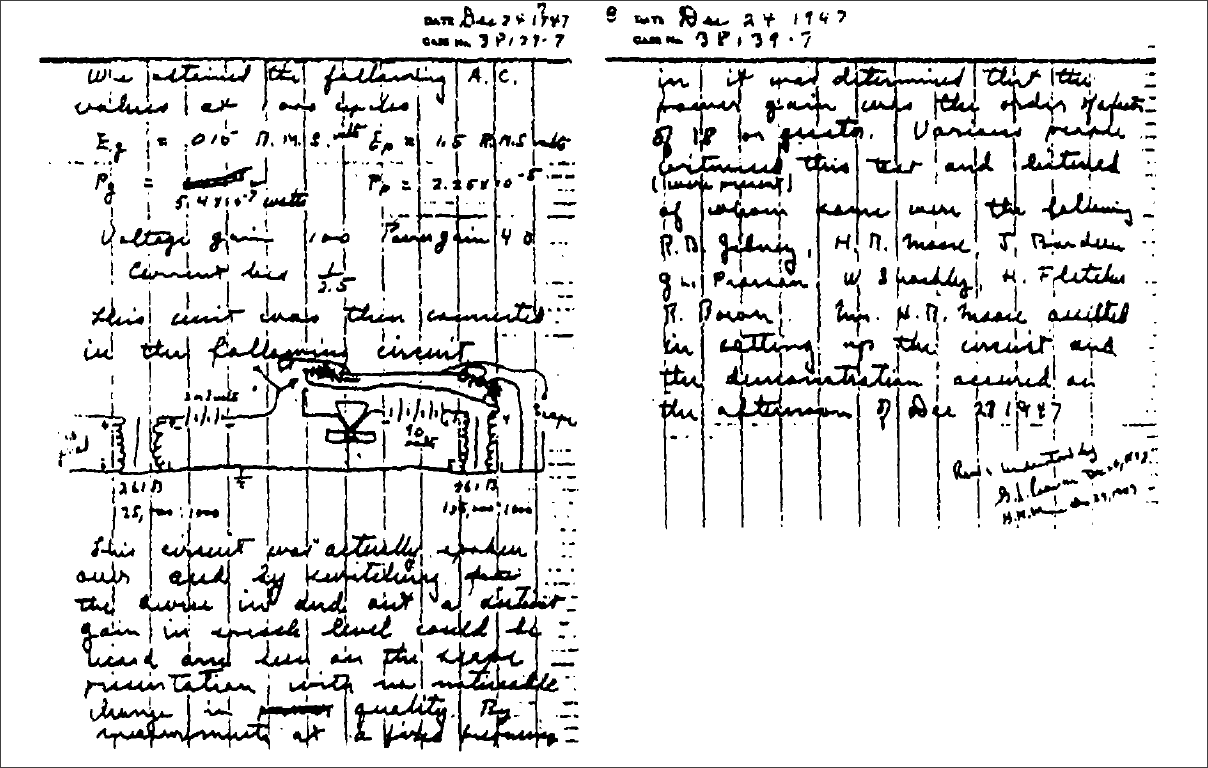 DATE Dec 24 1947
CASE No. 38139-7
We obtained the following A.C.
values at 1000 cycles
Eg = .015 R.M.S. volts Ep = 1.5 R.M.S volts
Pg = 5.4 x 10-7 watts Pp = 2.25 x 10-5
Voltage gain 100 Power gain 40
Current loss 1/2.5
This unit was then connected
in the following circuit
volts
90
volts
scope
261 B 261 B
25,000:1000 :1000
This circuit was actually spoken
over and by switching
the device in and out a distinct
gain in speech level could be
heard and seen on the scope
presentation with no noticeable
change in quality. By
measurements at a fixed frequency
8 DATE Dec 24 1947
CASE No. 38139-7
in it was determined that the
power gain was the order of a factor
of 18 or greater. Various people
witnessed this test and listened
(were present)
of whom some were the following
R.B. Gibney, H.R. Moore, J. Bardeen
G.L. Pearson, W Shockley, H. Fletcher
R. Bown. Mr. H.R. Moore assisted
in setting up the circuit and
the demonstration occured on
the afternoon of Dec 23 1947
Read & understood by
G.L. Pearson Dec
H.R. Moore Dec 1947